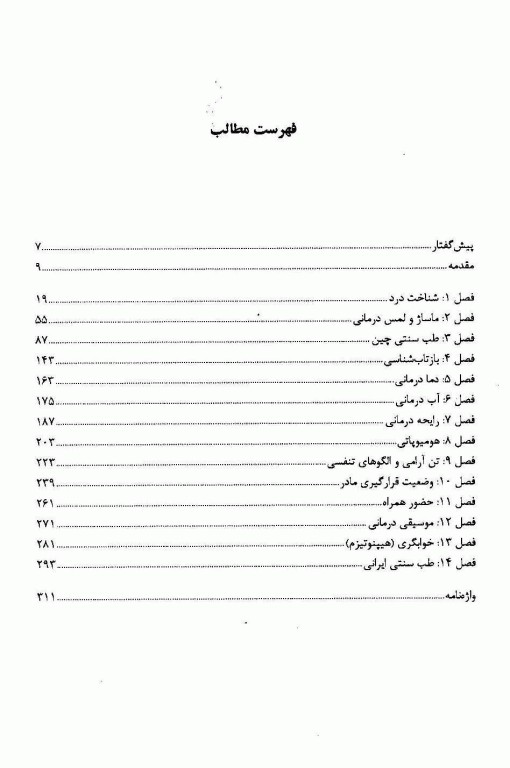 فهرست مطالب
پیش‌گفتار ........ ۷
مقدمه ........ ۹
فصل ۱: شناخت درد ........ ۱۹
فصل ۲: ماساژ و لمس درمانی ........ ۵۵
فصل ۳: طب سنتی چین ........ ۸۷
فصل ۴: بازتاب‌شناسی ........ ۱۴۳
فصل ۵: دما درمانی ........ ۱۶۳
فصل ۶: آب درمانی ........ ۱۷۵
فصل ۷: رایحه درمانی ........ ۱۸۷
فصل ۸: هومیوپاتی ........ ۲۰۳
فصل ۹: تن آرامی و الگوهای تنفسی ........ ۲۲۳
فصل ۱۰: وضعیت قرارگیری مادر ........ ۲۳۹
فصل ۱۱: حضور همراه ........ ۲۶۱
فصل ۱۲: موسیقی درمانی ........ ۲۷۱
فصل ۱۳: خوابگری (هیپنوتیزم) ........ ۲۸۱
فصل ۱۴: طب سنتی ایرانی ........ ۲۹۳
واژه‌نامه ........ ۳۱۱